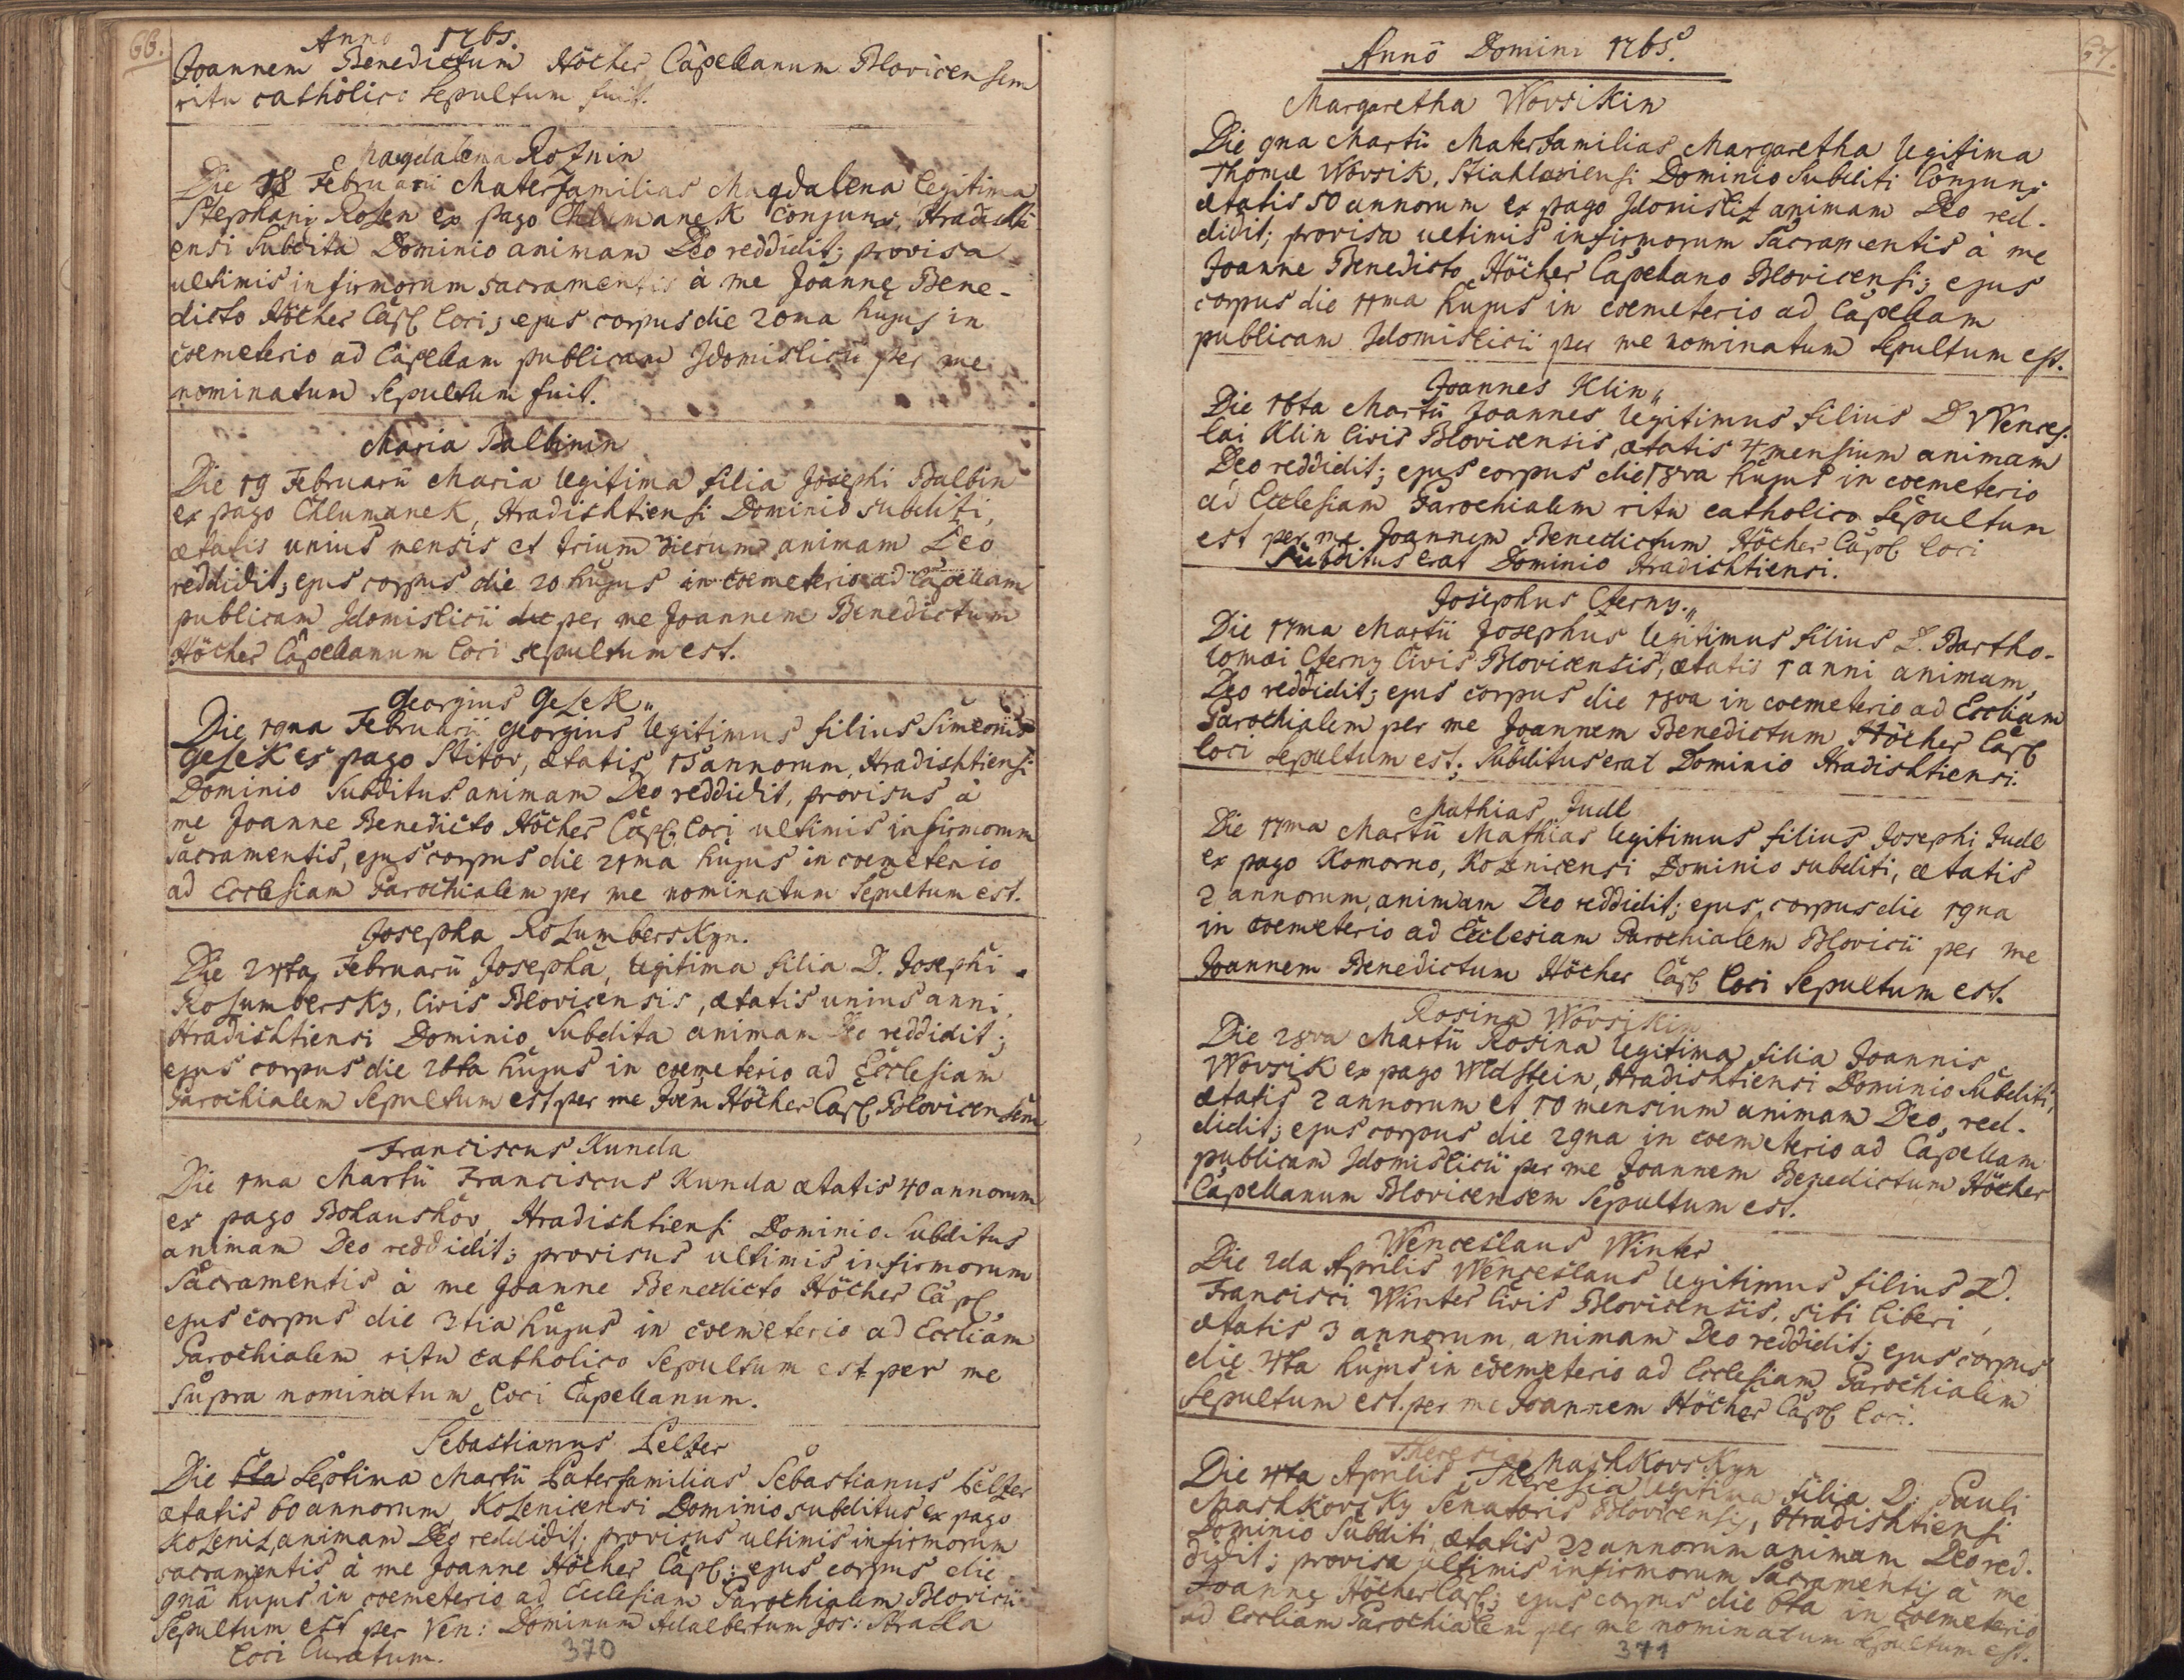 66.
Anno 1765.
Joannem Benedictum Höcher Capellanum Blovicensem
ritu catholico sepultum fuit.
Magdalena Roznin
Die 18 Februarii Materfamilias Magdalena legitima
Stephani Rosen ex pago Chlumanek conjunx, Hradishti
ensi subdita Dominio animam Deo reddidit; provisa
ultimis infirmorum sacramentis à me Joanne Bene-
dicto Höcher Capl loci, ejus corpus die 20ma hujus in
coemeterio ad Capellam publicam Zdomislicii per me
nominatum sepultum fuit.
Maria Balbinin
Die 19 Februarii Maria legitima filia Josephi Balbin
ex pago Chlumanek, Hradishtiensi Dominio subditi,
ætatis unius mensis et trium dierum animam Deo
reddidit, ejus corpus die 20 hujus in coemeterio ad Capellam
publicam Zdomislicii per me Joannem Benedictum
Höcher Capellanum loci sepultum est.
Georgius Gezek
Die 19na Februarii Georgius legitimus filius Simeonis
Gezek ex pago Stitov, ætatis 15 annorum, Hradishtiensi
Dominio subditus animam Deo reddidit, provisus à
me Joanne Benedicto Höcher Capl. loci ultimis infirmorum
sacramentis, ejus corpus die 21ma hujus in coemeterio
ad Ecclesiam Parochialem per me nominatum sepultum est.
Josepha Rozumberskyn.
Die 24ta Februarii Josepha, legitima filia D. Josephi
Rozumbersky, Civis Blovicensis, ætatis unius anni,
Hradishtiensi Dominio subdita animam Deo reddidit;
ejus corpus die 26ta hujus in coemeterio ad Ecclesiam
Parochialem sepultum est per me Joem Höcher Capl. Blovicensem
Franciscus Kunda
Die 1ma Martii Franciscus Kunda ætatis 40 annorum
ex pago Bohaushov, Hradishtiensi Dominio subditus
animam Deo reddidit; provisus ultimis infirmorum
Sacramentis à me Joanne Benedicto Höcher Capl.
ejus corpus die 3tia hujus in coemeterio ad Eccliam
Parochialem ritu catholico sepultum est per me
supra nominatum loci Capellanum.
Sebastianus Pelzer
Die 6ta Septima Martii Paterfamilias Sebastianus Pelzer
ætatis 60 annorum, Kozenicensi Dominio subditus ex pago
Kozeniz, animam Deo reddidit; provisus ultimis infirmorum
sacramentis à me Joanne Höcher Capl; ejus corpus die
9nâ hujus in coemeterio ad Ecclesiam Parochialem Blovicii
sepultum est per Ven: Dominum Adalbertum Jos:
loci Curatum.
370
67.
Anno Domini 1765.
Margaretha Wovsikin
Die 9na Martii Materfamilias Margaretha legitima
Thomæ Wovsik, Stiahlaviensi Dominio subditi Conjunx
ætatis 50 annorum ex pago Zdomisliz animam Deo red-
didit; provisa ultimis infirmorum sacramentis à me
Joanne Benedicto Höcher Capellano Blovicensi; ejus
corpus die 11ma hujus in coemeterio ad Capellam
publicam Zdomislicii per me nominatum sepultum est.
Joannes Klin
Die 16ta Martii Joannes legitimus filius D Wences-
lai Klin Civis Blovicensis, ætatis 4 mensium animam
Deo reddidit; ejus corpus die 18va hujus in coemeterio
ad Ecclesiam Parochialem ritu catholico sepultum
est per me Joannem Benedictum Höcher Capl loci
subditus erat Dominio Hradishtiensi.
Josephus Czerny.
Die 17ma Martii Josephus legitimus filius D. Bartho-
lomæi Czerny Civis Blovicensis, ætatis 1 anni animam,
Deo reddidit; ejus corpus die 18va in coemeterio ad Eccliam
Parochialem per me Joannem Benedictum Höcher Capl
loci sepultum est; subditus erat Dominio Hradishtiensi.
Mathias Judl
Die 17ma Martii Mathias legitimus filius Josephi Judl
ex pago Komorno, Kozenicensi Dominio subditi, ætatis
2 annorum, animam Deo reddidit; ejus corpus die 19na
in coemeterio ad Ecclesiam Parochialem Blovicii per me
Joannem Benedictum Höcher Capl loci sepultum est.
Rosina Wovsikin
Die 28va Martii Rosina legitima filia Joannis
Wovsik ex pago Wildstein, Hradishtiensi Dominio subditi,
ætatis 2 annorum et 10 mensium animam Deo red-
didit; ejus corpus die 29na in coemeterio ad Capellam
publicam Zdomislicii per me Joannem Benedictum Höcher
Capellanum Blovicensem sepultum est.
Wenceslaus Winter
Die 2da Aprilis Wenceslaus legitimus filius D.
Francisci Winter Civis Blovicensis, sibi liberi,
ætatis 3 annorum, animam Deo reddidit; ejus corpus
die 4ta hujus in coemeterio ad Ecclesiam Parochialem
sepultum est per me Joannem Höcher Capl loci.
Theresia Mashkovskyn
Die 4ta Aprilis Theresia legitima filia D: Pauli
Mashkovsky Senatoris Blovicensis, Hradishtiensi
Dominio subditi, ætatis 22 annorum animam Deo red-
didit; provisa ultimis infirmorum Sacramentis à me
Joanne Höcher Capl; ejus corpus die 6ta in coemeterio
ad Eccliam Parochialem per me nominatum sepultum est.
371